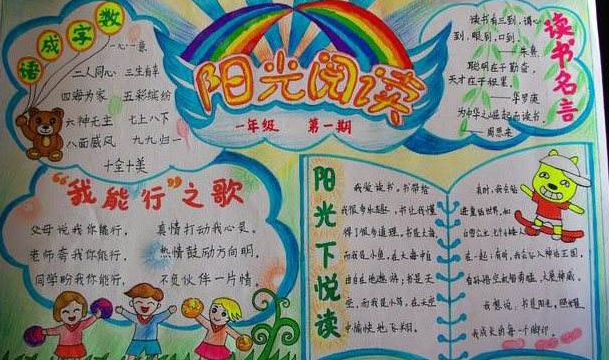 阳光阅读
一年级 第一期
数字成语
一心一意
二人同心 三生有幸
四海为家 五彩缤纷
六神无主 七上八下
八面威风 九九归一
十全十美
读书名言
读书有三到,谓心
到,眼到,口到。
——朱熹
聪明在于勤奋,
天才在于积累。
——华罗庚
为中华之崛起而读书。
——周恩来
“我能行”之歌
父母说我你能行,
老师夸我你能行,
同学盼我你能行,
真情打动我心灵。
热情鼓励方向明。
不负伙伴一片情。
阳光下悦读
我爱读书,书带给
我很多乐趣,书让我懂
得了很多道理。书是大海,
而我是小鱼,在大海中自
由自在地遨游;书是天
空,而我是小鸟,在天空
中愉快地飞翔。
有时,我会钻
进童话世界,和
白雪公主、七个小矮人
在一起;有时,我会
我想说:书是阳光,照耀着
我成长的每一个脚印。